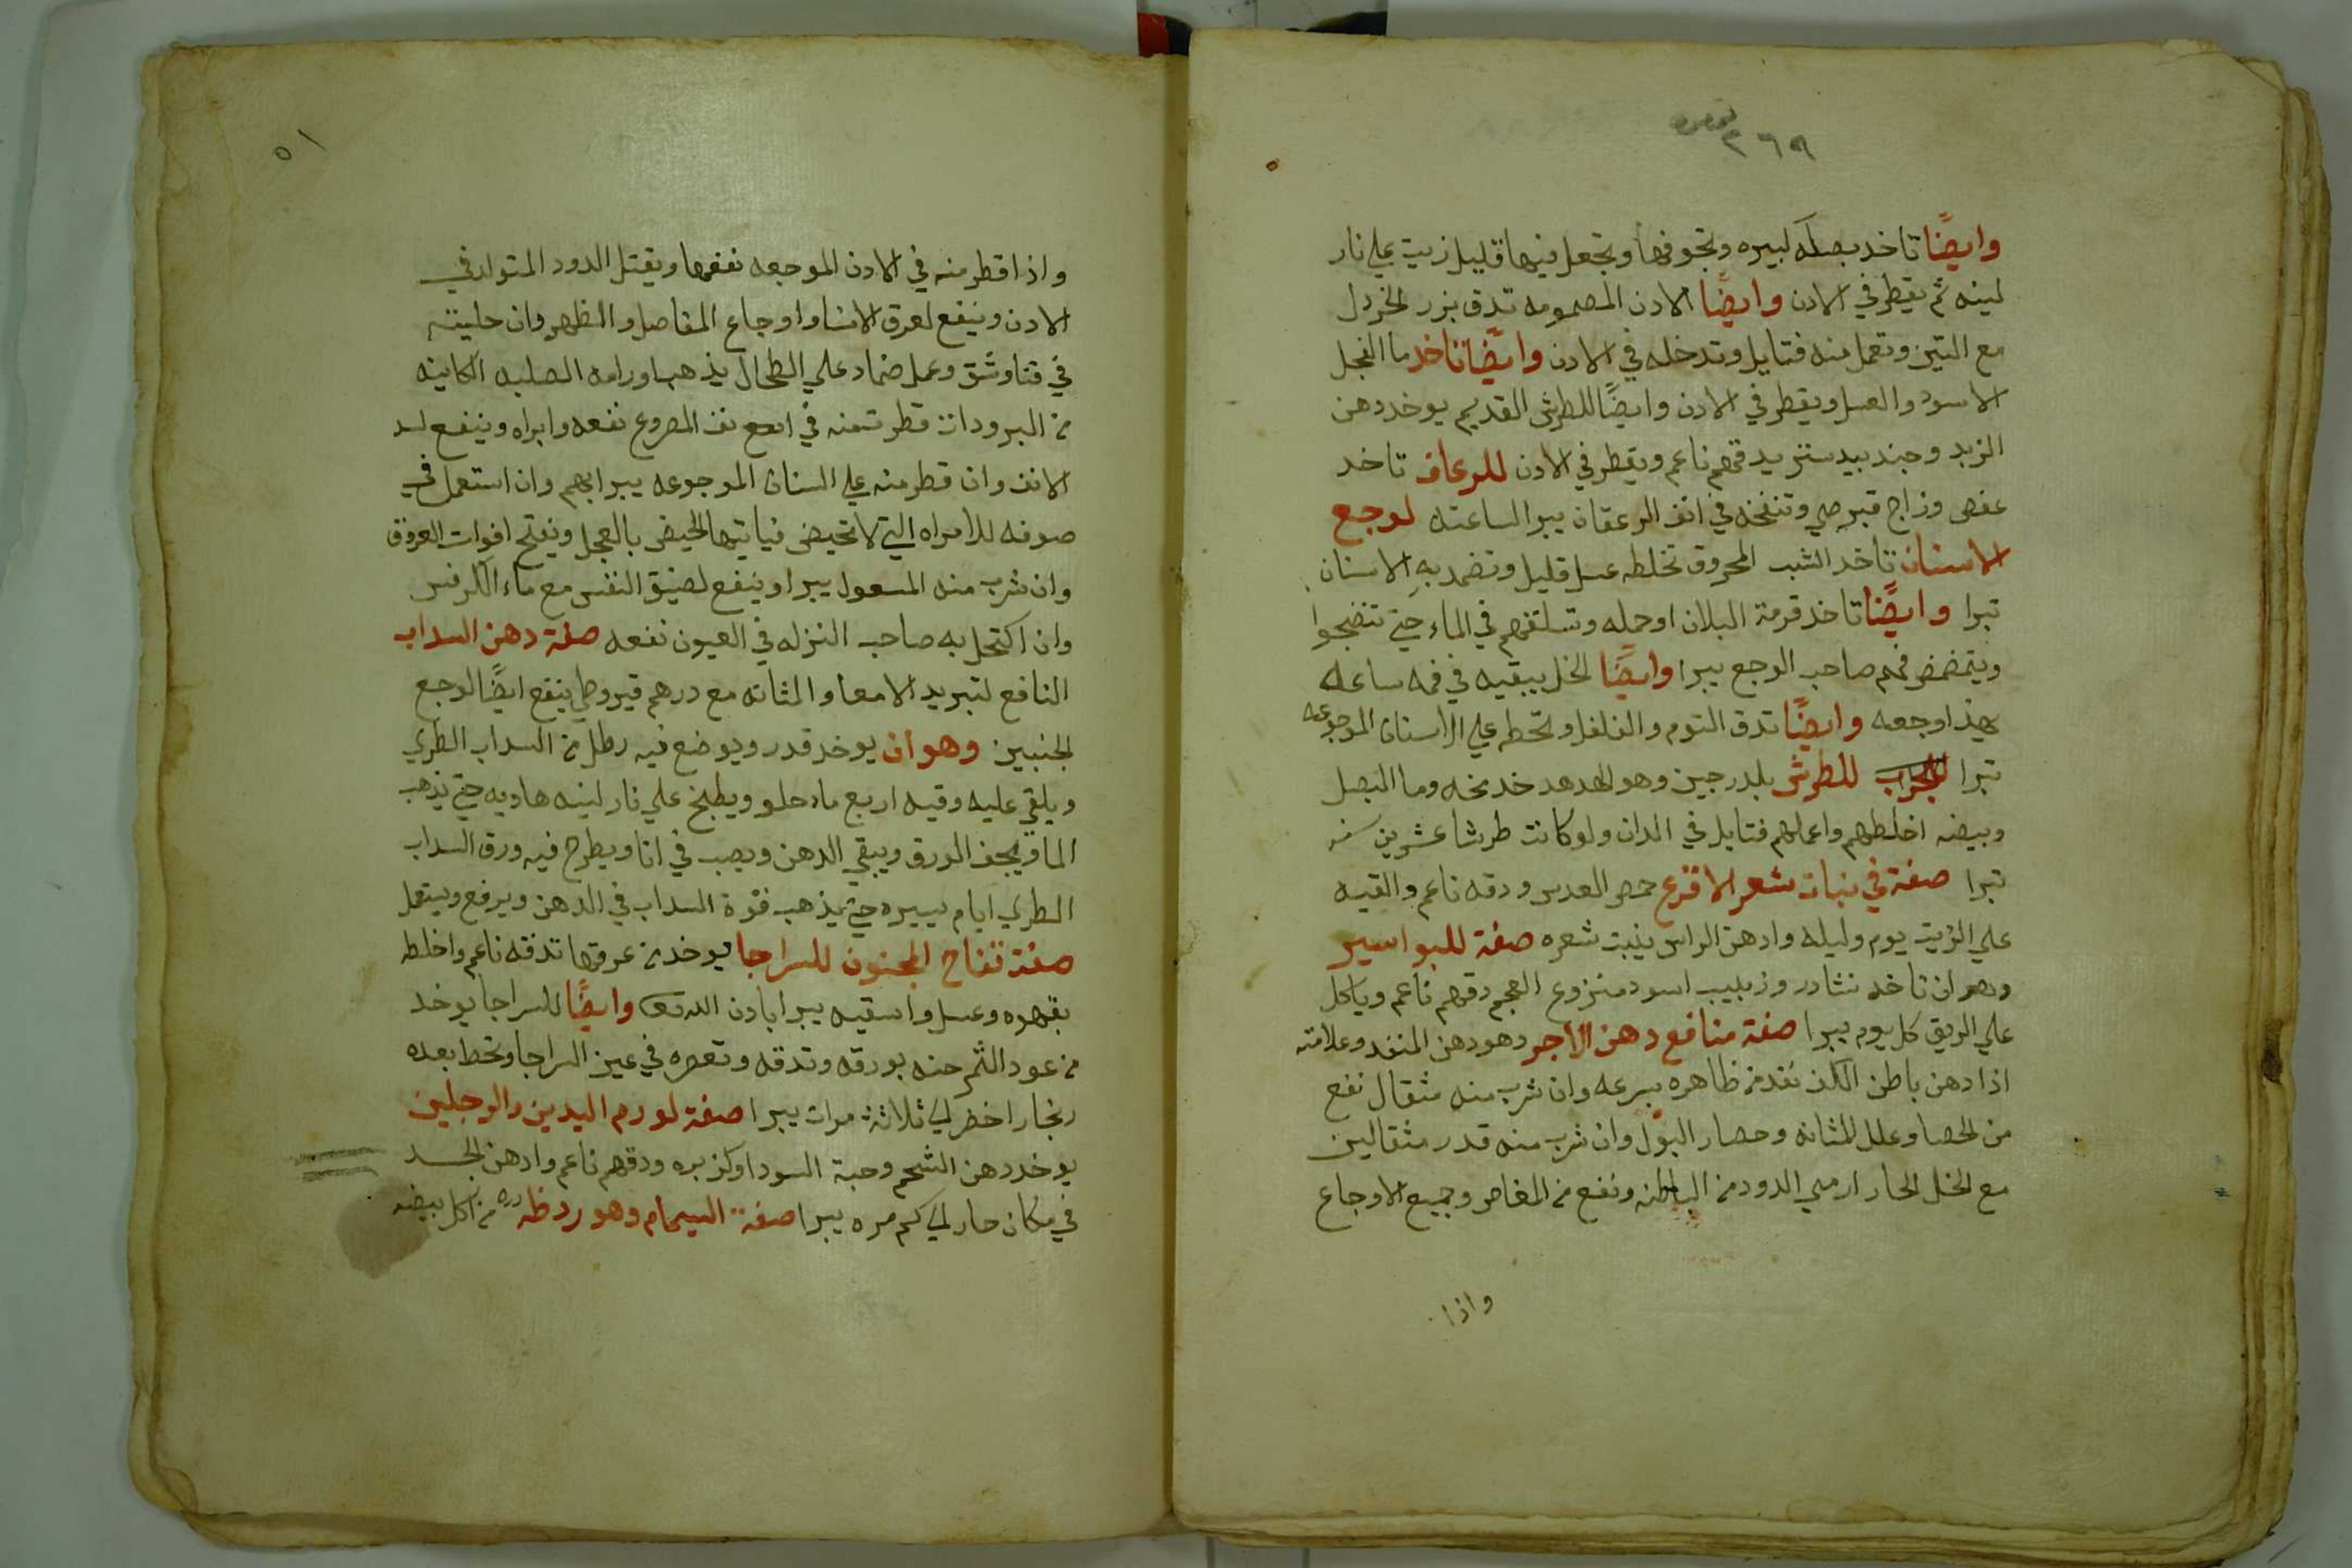 ٢٦٩
وايضًا تاخد بصله كبيره وتجوفها وتجعل فيها قليل زيت علي نار
لينه ثم يقطر في الادن وايضًا الادن المصمومه تدق بزر الخردل
مع التين وتعمل منه فتايل وتدخله في الادن وايضًا تاخد ما الفجل
الاسود والعسل ويقطر في الادن وايضًا للطرش القديم يوخد دهن
الزبد وجندبيدستر يدقهم ناعم ويقطر في الادن للرعاف تاخد
عفص وزاج قبرصي وتنفخه في انف الرعفان يبرا لساعته لوجع
الاسنان تاخد الشب المحروق تخلطه عسل قليل وتضمد به الاسنان
تبرا وايضًا تاخد قرمة البلان اوحمله وتسلقهم في الماء حتي تنضجوا
ويتمضمض فيهم صاحب الوجع يبرا وايضًا الخل يبقيه في فمه ساعه
يهدا وجعه وايضًا تدق التوم والفلفل وتحطم علي الاسنان الموجوعه
تبرا للطرش بلدرجين وهو الهدهد خد مخه وما البصل
وبيضه اخلطهم واعملهم فتايل في الدان ولو كانت طرشا عشرين سنه
تبرا صفة في نبات شعر الاقرع حمص العدس ودقه ناعم والقيه
علي الزيت يوم وليله وادهن الراس ينبت شعره صفة للبواسير
وهو ان تاخد نشادر وزبيب اسود منزوع العجم دقهم ناعم وياكل
علي الريق كل يوم يبرا صفة منافع دهن الاجر وهو دهن المنفد وعلامته
اذا دهن باطن الكف نفد من ظاهره بسرعه وان شرب منه مثقال نفع
من الحصا وعلل المثانه وحصار البول وان شرب منه قدر مثقالين
مع الخل الحار ارمي الدود من الباطنه ونفع من المغاص وجميع الاوجاع
واذا
٥١
واذا قطر منه في الادن الموجعه نفعها ويقتل الدود المتولد في
الادن وينفع لعرق الانسا واوجاع المفاصل والظهر وان حليته
في قنا وشق وعمل ضماد علي الطحال يذهب اورامه الصلبه الكاينه
من البرودات قطرت منه في انف المصروع نفعه وابراه وينفع لسد
الانف وان قطر منه علي السنان الموجوعه يبرا بهم وان استعمل في
صوفه للامراه التي لا تحيض فياتيها الحيض بالعجل ويفتح افوات العروق
وان شرب منه المسعول يبرا وينفع لضيق النفس مع ماء الكرفس
وان اكتحل به صاحب النزله في العيون نفعه صفة دهن السداب
النافع لتبريد الامعا والمثانه مع درهم قيروطي ينفع ايضًا لوجع
الجنبين وهو ان يوخد قدر ويوضع فيه رطل من السداب الطري
ويلقي عليه وقيه اربع ماء حلو ويطبخ علي نار لينه هاديه حتي يذهب
الما ويجف الورق ويبقي الدهن ويصب في انا ويطرح فيه ورق السداب
الطري ايام يسيره حتي يذهب قوة السداب في الدهن ويرفع ويستعمل
صفة تفاح المجنون للسراجا يوخد من عروقها تدقه ناعم واخلطه
بقهوه وعسل واسقيه يبرا بادن الله وايضًا للسراجا يوخد
من عود الثمر حنه بورقه وتدقه وتعصره في عين السراجا وتحط بعده
زنجار اخضر لي ثلاثة مرات يبرا صفة لورم اليدين والرجلين
يوخد دهن الشحم وحبة السودا وكزبره ودقهم ناعم وادهن الجسد
في مكان حار لي كم مره يبرا صفة السمام وهو رد ظهره من اكل بيضه